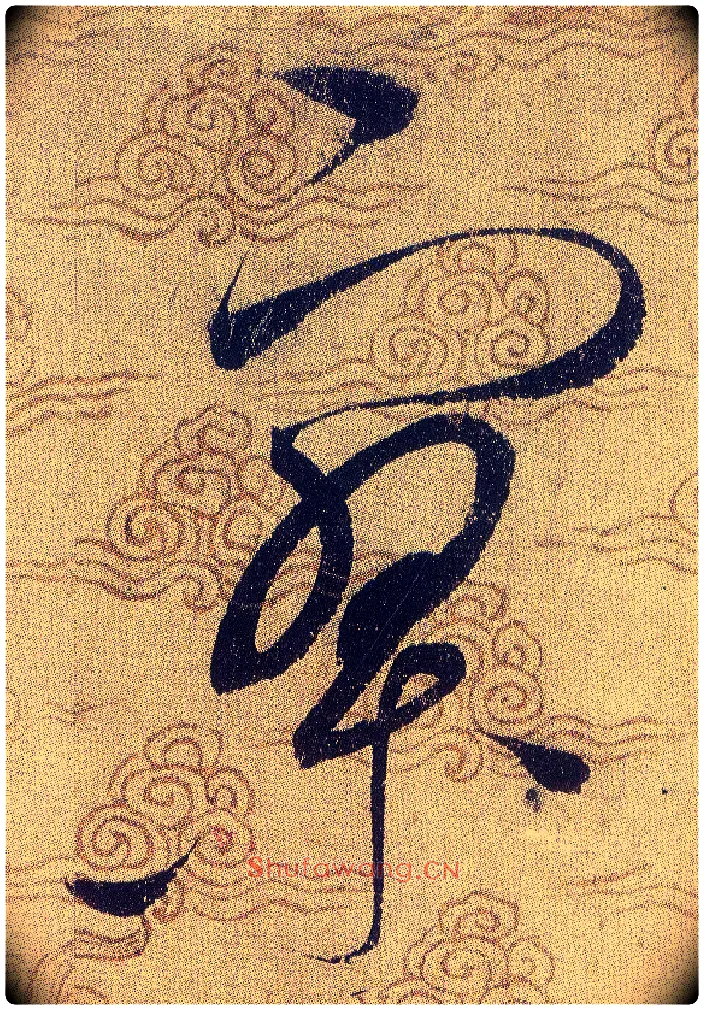 察
Shufawang.CN